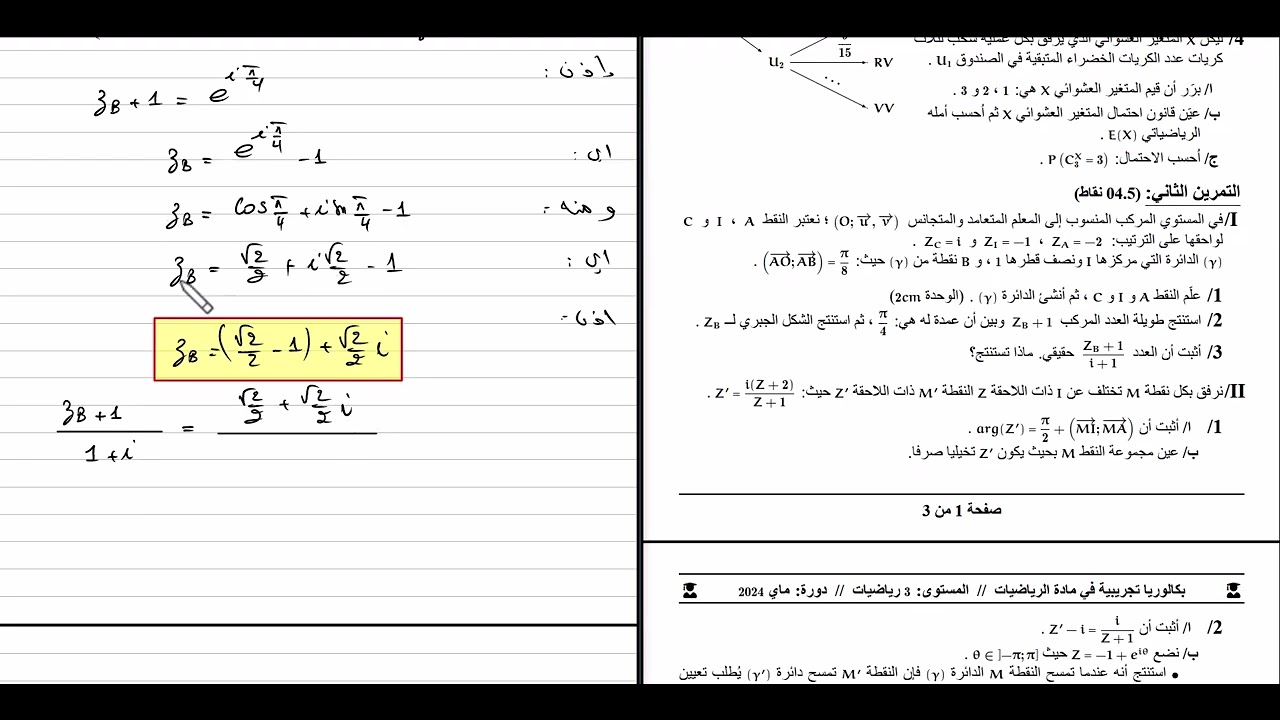 إذن :
z_B + 1 = e^{iπ/4}
أي :
z_B = e^{iπ/4} - 1
ومنه :
z_B = cos π/4 + i sin π/4 - 1
أي :
z_B = √2/2 + i √2/2 - 1
إذن :
z_B = (√2/2 - 1) + √2/2 i
(z_B + 1)/(1 + i) = √2/2 + √2/2 i
U₂
15
RV
...
VV
4/ ليكن X المتغير العشوائي الذي يرفق بكل عملية سحب لثلاث
كريات عدد الكريات الخضراء المتبقية في الصندوق U₁ .
ا/ برّر أن قيم المتغير العشوائي X هي: 1 ، 2 و 3 .
ب/ عيّن قانون احتمال المتغير العشوائي X ثم أحسب أمله
الرياضياتي E(X) .
ج/ أحسب الاحتمال: P(C₃ˣ = 3) .
التمرين الثاني: (04.5 نقاط)
I/ في المستوي المركب المنسوب إلى المعلم المتعامد والمتجانس (O; u⃗, v⃗) ؛ نعتبر النقط A ، I و C
لواحقها على الترتيب: Z_A = −2 ، Z_I = −1 و Z_C = i .
(γ) الدائرة التي مركزها I ونصف قطرها 1 ، و B نقطة من (γ) حيث: (AO⃗; AB⃗) = π/8 .
1/ علّم النقط A و I و C ، ثم أنشئ الدائرة (γ) . (الوحدة 2cm)
2/ استنتج طويلة العدد المركب Z_B + 1 وبين أن عمدة له هي: π/4 ، ثم استنتج الشكل الجبري لـ Z_B .
3/ أثبت أن العدد (Z_B + 1)/(i + 1) حقيقي. ماذا تستنتج؟
II/ نرفق بكل نقطة M تختلف عن I ذات اللاحقة Z النقطة M′ ذات اللاحقة Z′ حيث: Z′ = i(Z + 2)/(Z + 1) .
1/ ا/ أثبت أن arg(Z′) = π/2 + (MI⃗; MA⃗) .
ب/ عين مجموعة النقط M بحيث يكون Z′ تخيليا صرفا.
صفحة 1 من 3
بكالوريا تجريبية في مادة الرياضيات // المستوى: 3 رياضيات // دورة: ماي 2024
2/ ا/ أثبت أن Z′ − i = i/(Z + 1) .
ب/ نضع Z = −1 + e^{iθ} حيث θ ∈ ]−π; π] .
• استنتج أنه عندما تمسح النقطة M الدائرة (γ) فإن النقطة M′ تمسح دائرة (γ′) يُطلب تعيين